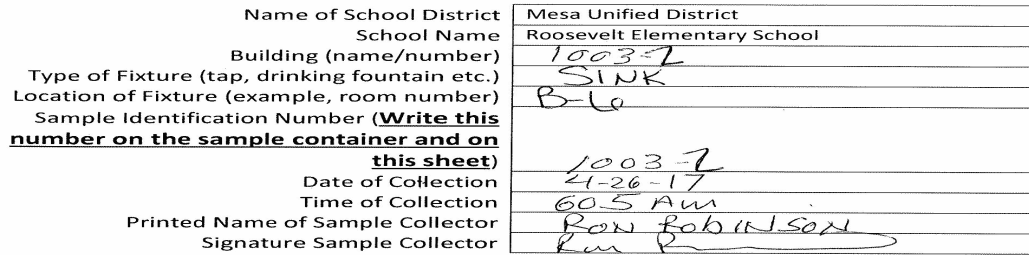 Name of School District Mesa Unified District
School Name Roosevelt Elementary School
Building (name/number) 1003-2
Type of Fixture (tap, drinking fountain etc.) SINK
Location of Fixture (example, room number) B-6
Sample Identification Number (Write this
number on the sample container and on
this sheet) 1003-2
Date of Collection 4-26-17
Time of Collection 605 AM
Printed Name of Sample Collector RON ROBINSON
Signature Sample Collector